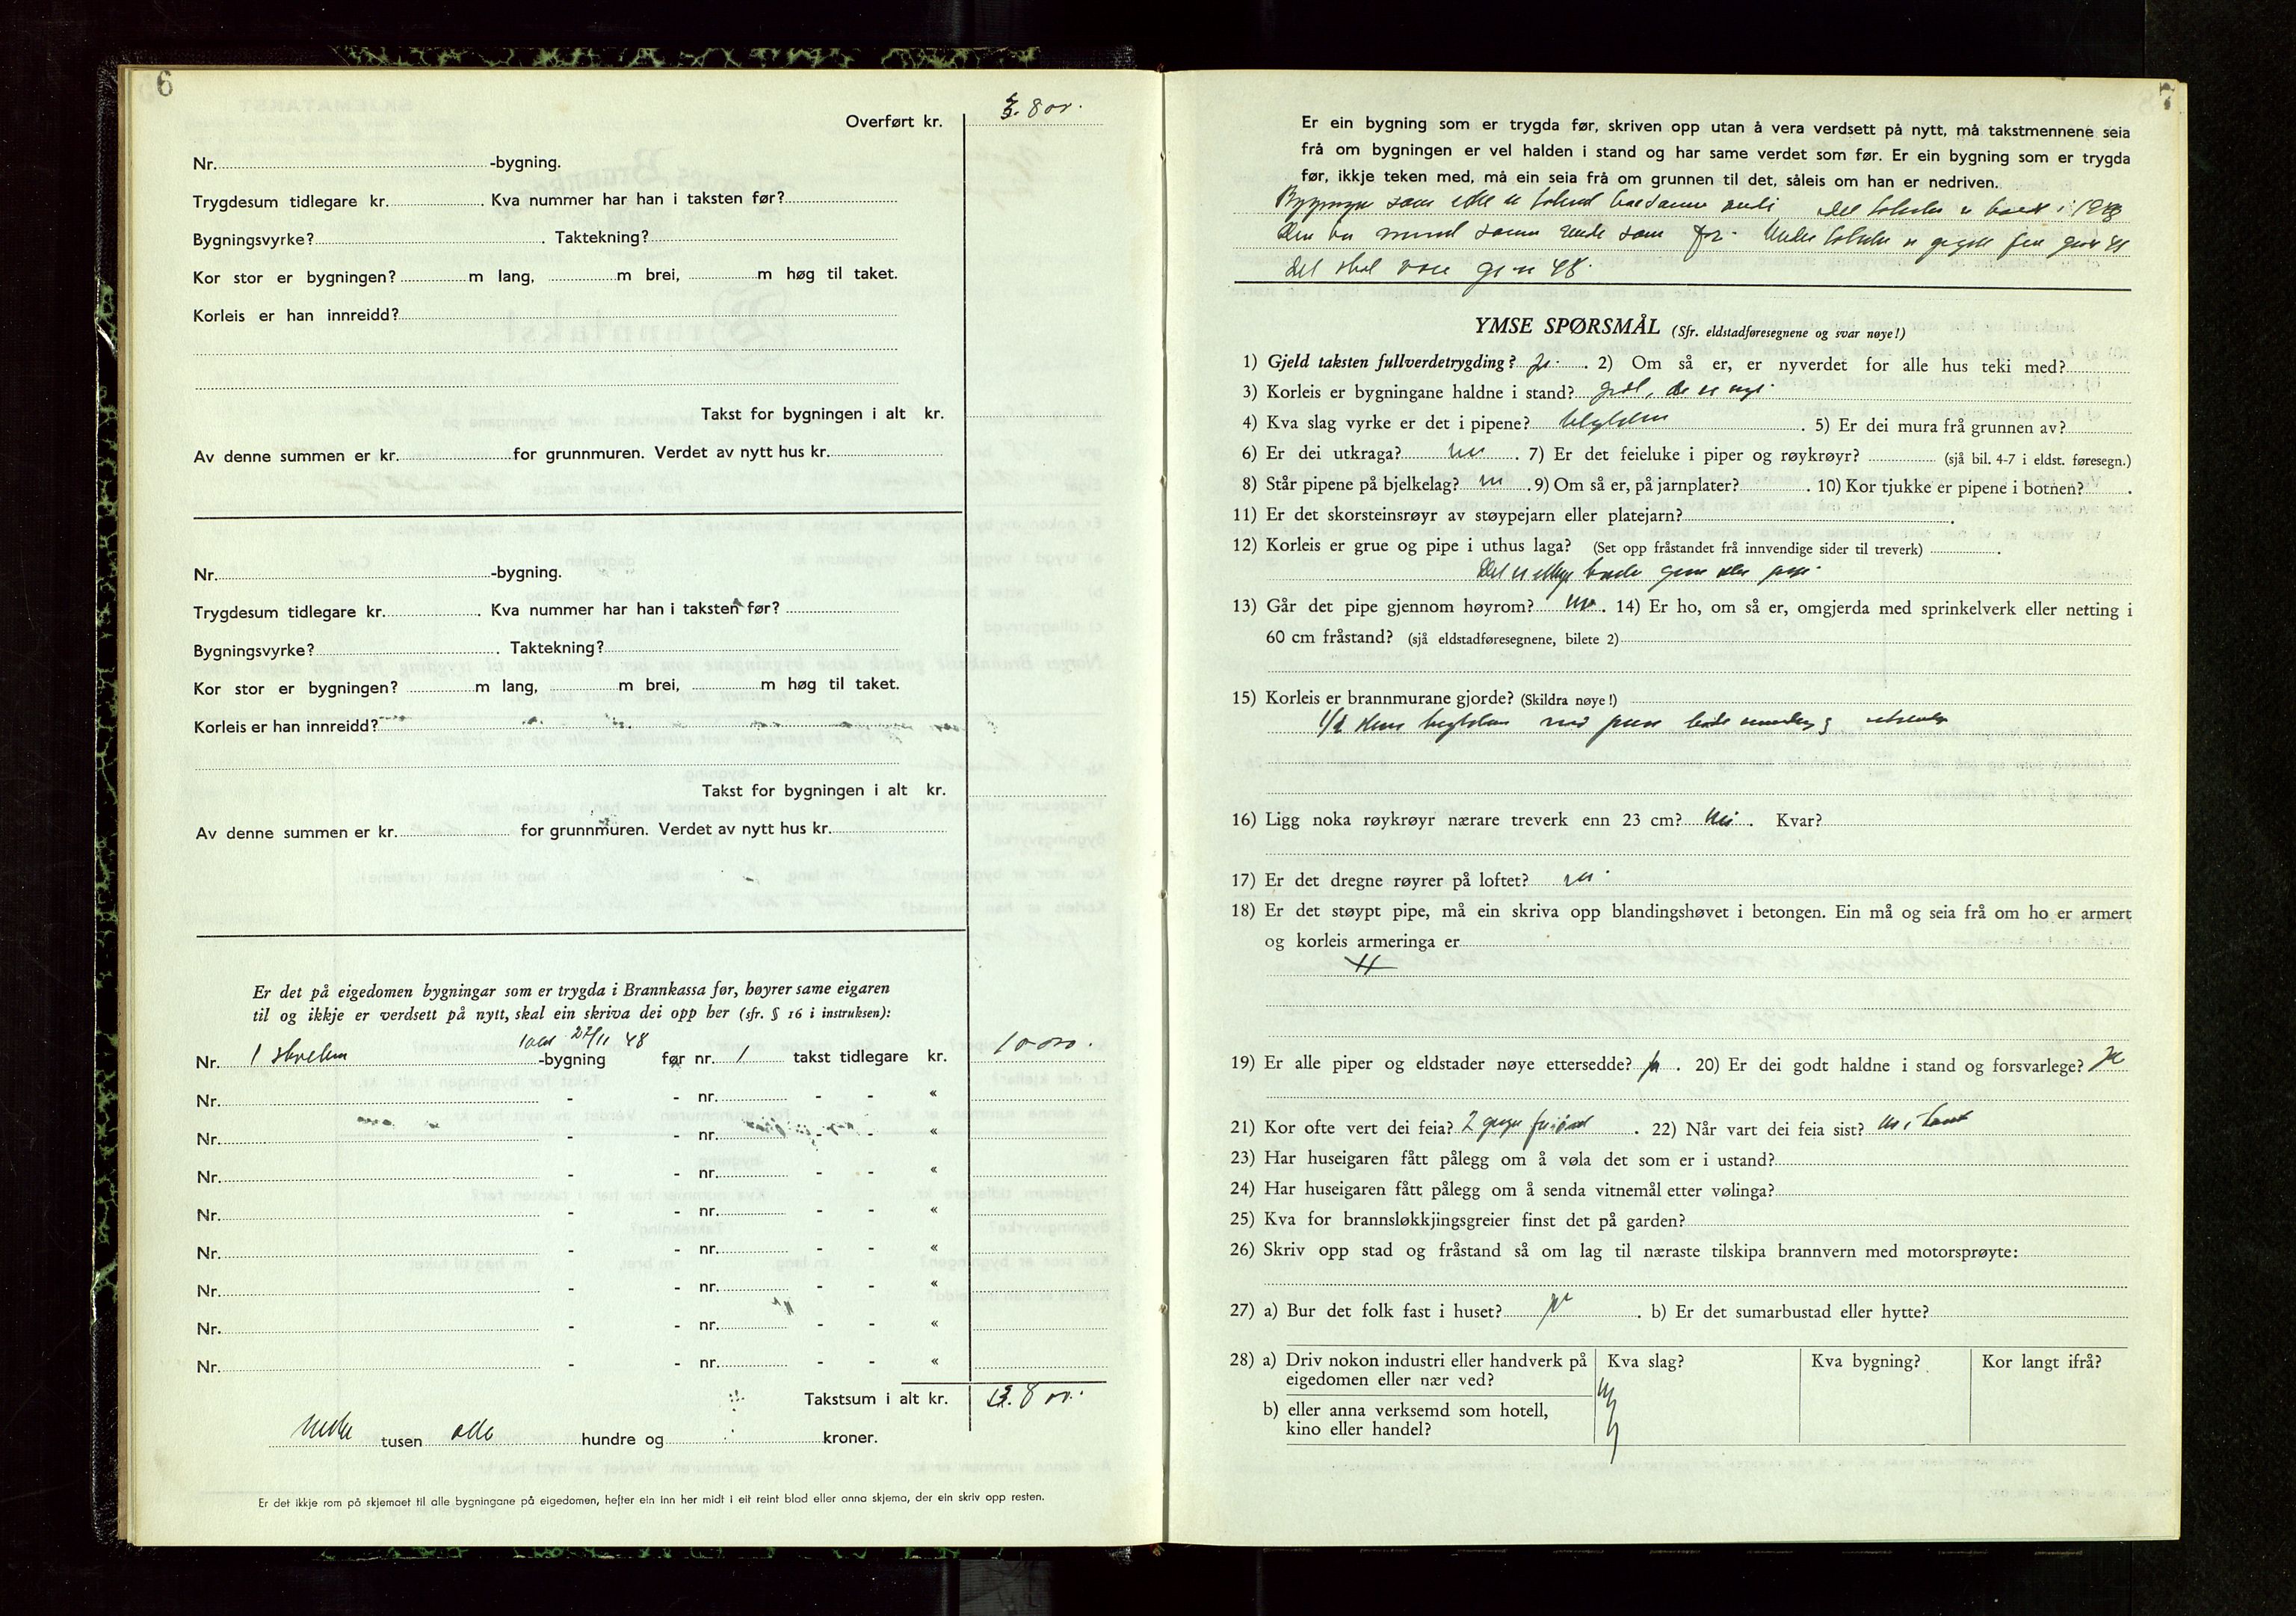 6
Overført kr. 3.800.
Nr. -bygning.
Trygdesum tidlegare kr. Kva nummer har han i taksten før?
Bygningsvyrke? Taktekning?
Kor stor er bygningen? m lang, m brei, m høg til taket.
Korleis er han innreidd?
Takst for bygningen i alt kr.
Av denne summen er kr. for grunnmuren. Verdet av nytt hus kr.
Nr. -bygning.
Trygdesum tidlegare kr. Kva nummer har han i taksten før?
Bygningsvyrke? Taktekning?
Kor stor er bygningen? m lang, m brei, m høg til taket.
Korleis er han innreidd?
Takst for bygningen i alt kr.
Av denne summen er kr. for grunnmuren. Verdet av nytt hus kr.
Er det på eigedomen bygningar som er trygda i Brannkassa før, høyrer same eigaren
til og ikkje er verdsett på nytt, skal ein skriva dei opp her (sfr. § 16 i instruksen):
27/11 48
Nr. 1 -bygning før nr. 1 takst tidlegare kr. 10000.
Nr. - - nr. - - «
Nr. - - nr. - - «
Nr. - - nr. - - «
Nr. - - nr. - - «
Nr. - - nr. - - «
Nr. - - nr. - - «
Nr. - - nr. - - «
Nr. - - nr. - - «
Takstsum i alt kr. 13.800.
tusen hundre og kroner.
Er det ikkje rom på skjemaet til alle bygningane på eigedomen, hefter ein inn her midt i eit reint blad eller anna skjema, der ein skriv opp resten.
7
Er ein bygning som er trygda før, skriven opp utan å vera verdsett på nytt, må takstmennene seia
frå om bygningen er vel halden i stand og har same verdet som før. Er ein bygning som er trygda
før, ikkje teken med, må ein seia frå om grunnen til det, såleis om han er nedriven.
som i 1948
som før.
det skal vere 48.
YMSE SPØRSMÅL (Sfr. eldstadføresegnene og svar nøye!)
1) Gjeld taksten fullverdetrygding? ja. 2) Om så er, er nyverdet for alle hus teki med?
3) Korleis er bygningane haldne i stand? godt, de er nye.
4) Kva slag vyrke er det i pipene? teglstein. 5) Er dei mura frå grunnen av?
6) Er dei utkraga? nei. 7) Er det feieluke i piper og røykrøyr? (sjå bil. 4-7 i eldst. føresegn.)
8) Står pipene på bjelkelag? nei. 9) Om så er, på jarnplater? 10) Kor tjukke er pipene i botnen?
11) Er det skorsteinsrøyr av støypejarn eller platejarn?
12) Korleis er grue og pipe i uthus laga? (Set opp fråstandet frå innvendige sider til treverk)
Det er ikkje
13) Går det pipe gjennom høyrom? nei. 14) Er ho, om så er, omgjerda med sprinkelverk eller netting i
60 cm fråstand? (sjå eldstadføresegnene, bilete 2)
15) Korleis er brannmurane gjorde? (Skildra nøye!)
1/2 stens teglsten med puss både innvendig og utvendig
16) Ligg noka røykrøyr nærare treverk enn 23 cm? Nei. Kvar?
17) Er det dregne røyrer på loftet? nei.
18) Er det støypt pipe, må ein skriva opp blandingshøvet i betongen. Ein må og seia frå om ho er armert
og korleis armeringa er
19) Er alle piper og eldstader nøye ettersedde? ja. 20) Er dei godt haldne i stand og forsvarlege? ja
21) Kor ofte vert dei feia? 2 gonger . 22) Når vart dei feia sist?
23) Har huseigaren fått pålegg om å vøla det som er i ustand?
24) Har huseigaren fått pålegg om å senda vitnemål etter vølinga?
25) Kva for brannsløkkjingsgreier finst det på garden?
26) Skriv opp stad og fråstand så om lag til næraste tilskipa brannvern med motorsprøyte:
27) a) Bur det folk fast i huset? ja. b) Er det sumarbustad eller hytte?
28) a) Driv nokon industri eller handverk på eigedomen eller nær ved? Kva slag? Kva bygning? Kor langt ifrå?
b) eller anna verksemd som hotell, kino eller handel?